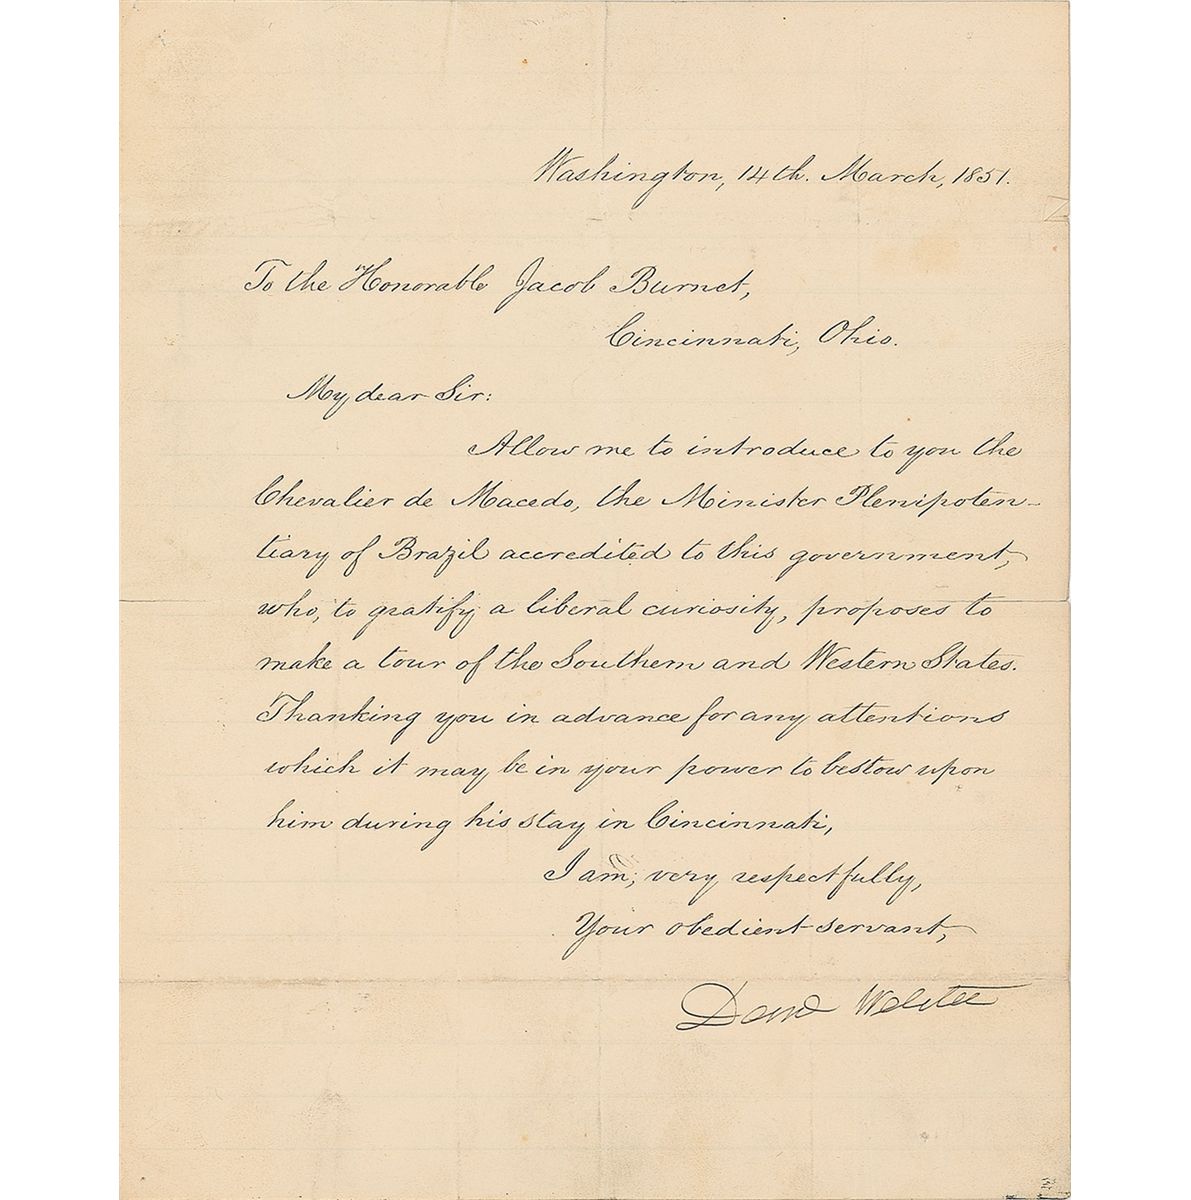 Washington, 14th. March, 1851.
To the Honorable Jacob Burnet,
Cincinnati, Ohio.
My dear Sir:
Allow me to introduce to you the
Chevalier de Macedo, the Minister Plenipoten-
tiary of Brazil accredited to this government,
who, to gratify a liberal curiosity, proposes to
make a tour of the Southern and Western States.
Thanking you in advance for any attentions
which it may be in your power to bestow upon
him during his stay in Cincinnati,
I am, very respectfully,
Your obedient servant,
Danl Webster